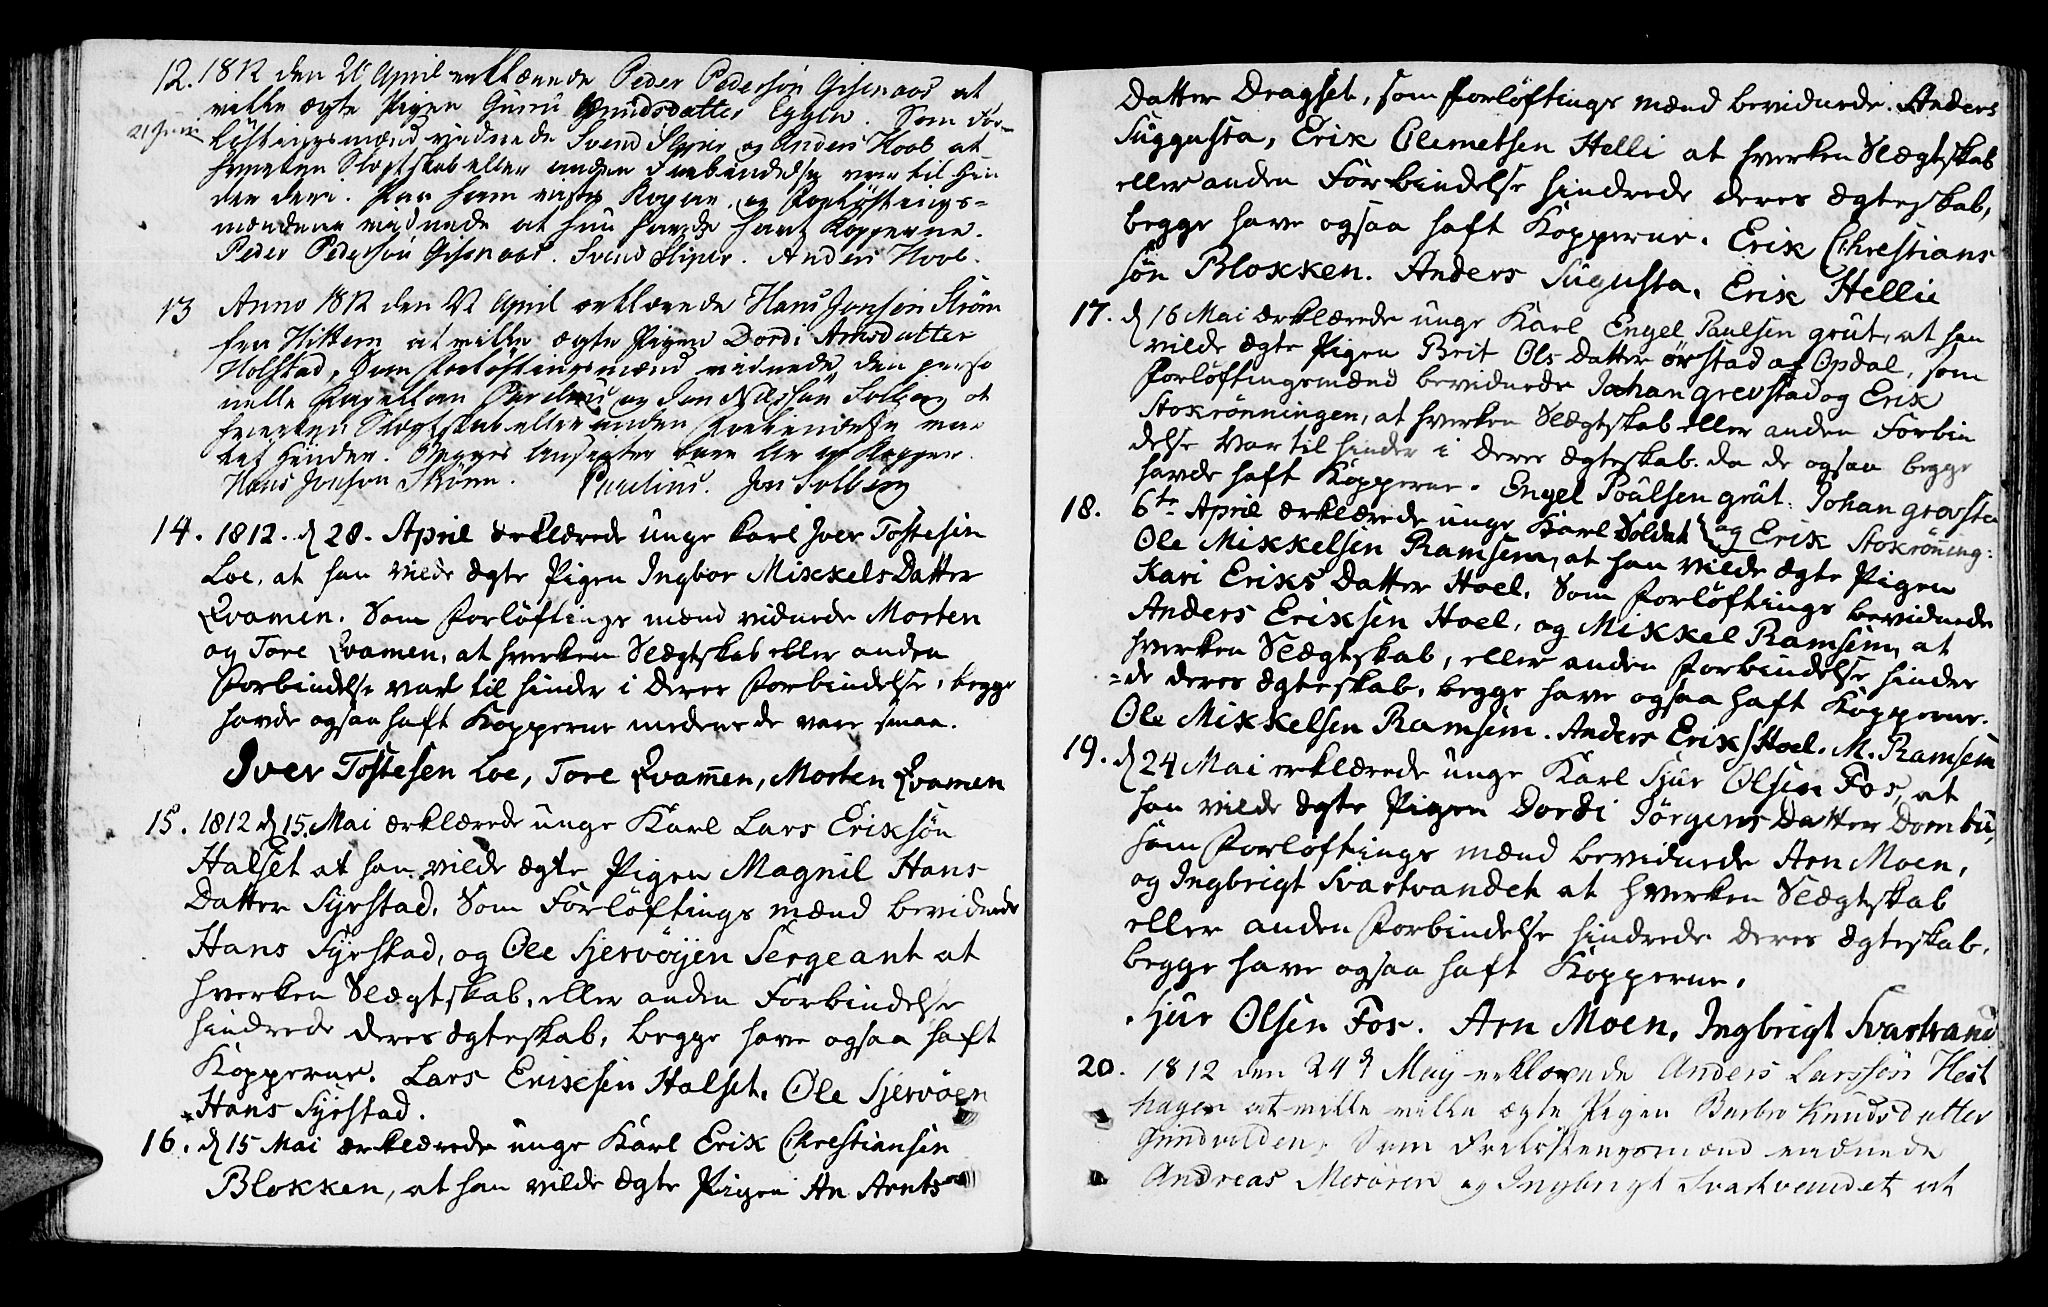 12. 1812 den 20 April erklærede Peder Pedersön Gisnaas at
ville ægte Pigen Guru Knudsdatter Eggen. Som For-
21 Juni
löftningsmænd vidnede Svend Sliper og Anders Hoel at
hverken Slægtskab eller anden Forbindelse var til Hin
der deri. Paa ham Kopper, og Forlöftnings-
mændene vidnede at hun havde havt Kopperne.
Peder Pedersön Gisnaas. Svend Sliper. Anders Hoel.
13 Anno 1812 den 22 April erklærede Hans Jonsön Ström
fra Hittern at ville ægte Pigen Dordi Arnsdatter
Holstad, Som Forlöftningsmænd vidnede den perso
nelle Capellan Parelius og Jon Nilssön Solberg at
hverken Slægtskab eller anden Forbindelse var
til Hinder. Begges Ansigter bare Ar af Kopper.
Hans Jonson Ström. Parelius. Jon Solberg
14. 1812. d 28. April erklærede unge Karl Iver Tostesen
Loe, at han vilde ægte Pigen Ingbor Mikkels Datter
Qvamen. Som Forlöftings mænd vidnede Morten
og Tore Qvamen, at hverken Slægtskab eller anden
Forbindelse var til hinder i deres Forbindelse, begge
havde ogsaa haft Kopperne medens de vare smaa.
Iver Tostesen Loe, Tore Qvamen, Morten Qvamen
15. 1812 d 15. Mai ærklærede unge Karl Lars Eriksön
Halset at han vilde ægte Pigen Magnil Hans
Datter Syrstad, Som Forlöftings mænd bevidnede
Hans Syrstad, og Ole Hiervöyen Sergeant at
hverken Slægtskab, eller anden Forbindelse
hindrede deres ægteskab, begge have ogsaa haft
Kopperne. Lars Eriksen Halset. Ole Hiervöen
Hans Syrstad.
16. d 15 Mai ærklærede unge Karl Erik Chrestiansen
Blokken, at han vilde ægte Pigen An Arnts
Datter Dragset, som Forlöftings mænd bevidnede Anders
Suggusta, Erik Clemetsen Helli at hverken Slægtskab
eller anden Forbindelse hindrede deres ægteskab,
begge have ogsaa haft Kopperne. Erik Chrestians
sön Blokken. Anders Sugusta. Erik Hellie
17. d 16 Mai ærklærede unge Karl Engel Paulsen grut, at han
vilde ægte Pigen Brit Ols Datter örstad af Opdal, som
Forlöftingsmænd bevidnede Johan grevstad og Erik
Stokrönningen, at hverken Slægtskab eller anden Forbin
delse var til hinder i deres ægteskab. da de ogsaa begge
havde haft Kopperne. Engel Poulsen grut. Johan grevsta
og Erik Stokröning:
18. 6te April ærklærede unge Karl Soldat
Ole Mikkelsen Ramsem, at han vilde ægte Pigen
Kari Eriks Datter Hoel. Som Forlöftings bevidnede
Anders Eriksen Hoel, og Mikkel Ramsem, at
hverken Slægtskab, eller anden Forbindelse hindre
=de deres ægteskab. begge have ogsaa haft Kopperne.
Ole Mikkelsen Ramsem. Anders Eriks Hoel. M. Ramsem
19. d 24 Mai erklærede unge Karl Sjur Olsen Fos, at
han vilde ægte Pigen Dordi Jörgens Datter Dombu,
som Forlöftings mænd bevidnede Arn Moen,
og Ingbrigt Svartvandet at hverken Slægtskab
eller anden Forbindelse hindrede deres ægteskab.
begge have ogsaa haft Kopperne.
Sjur Olsen Fos. Arn Moen, Ingbrigt Svartvand
20. 1812 den 24d May erklærede Anders Larssön Hest
hagen at ville ville ægte Pigen Barbro Knudsdatter
Grindvolden, Som Forlöftningsmænd vidnede
Andreas Mosören og Ingbrigt Svartvandet at